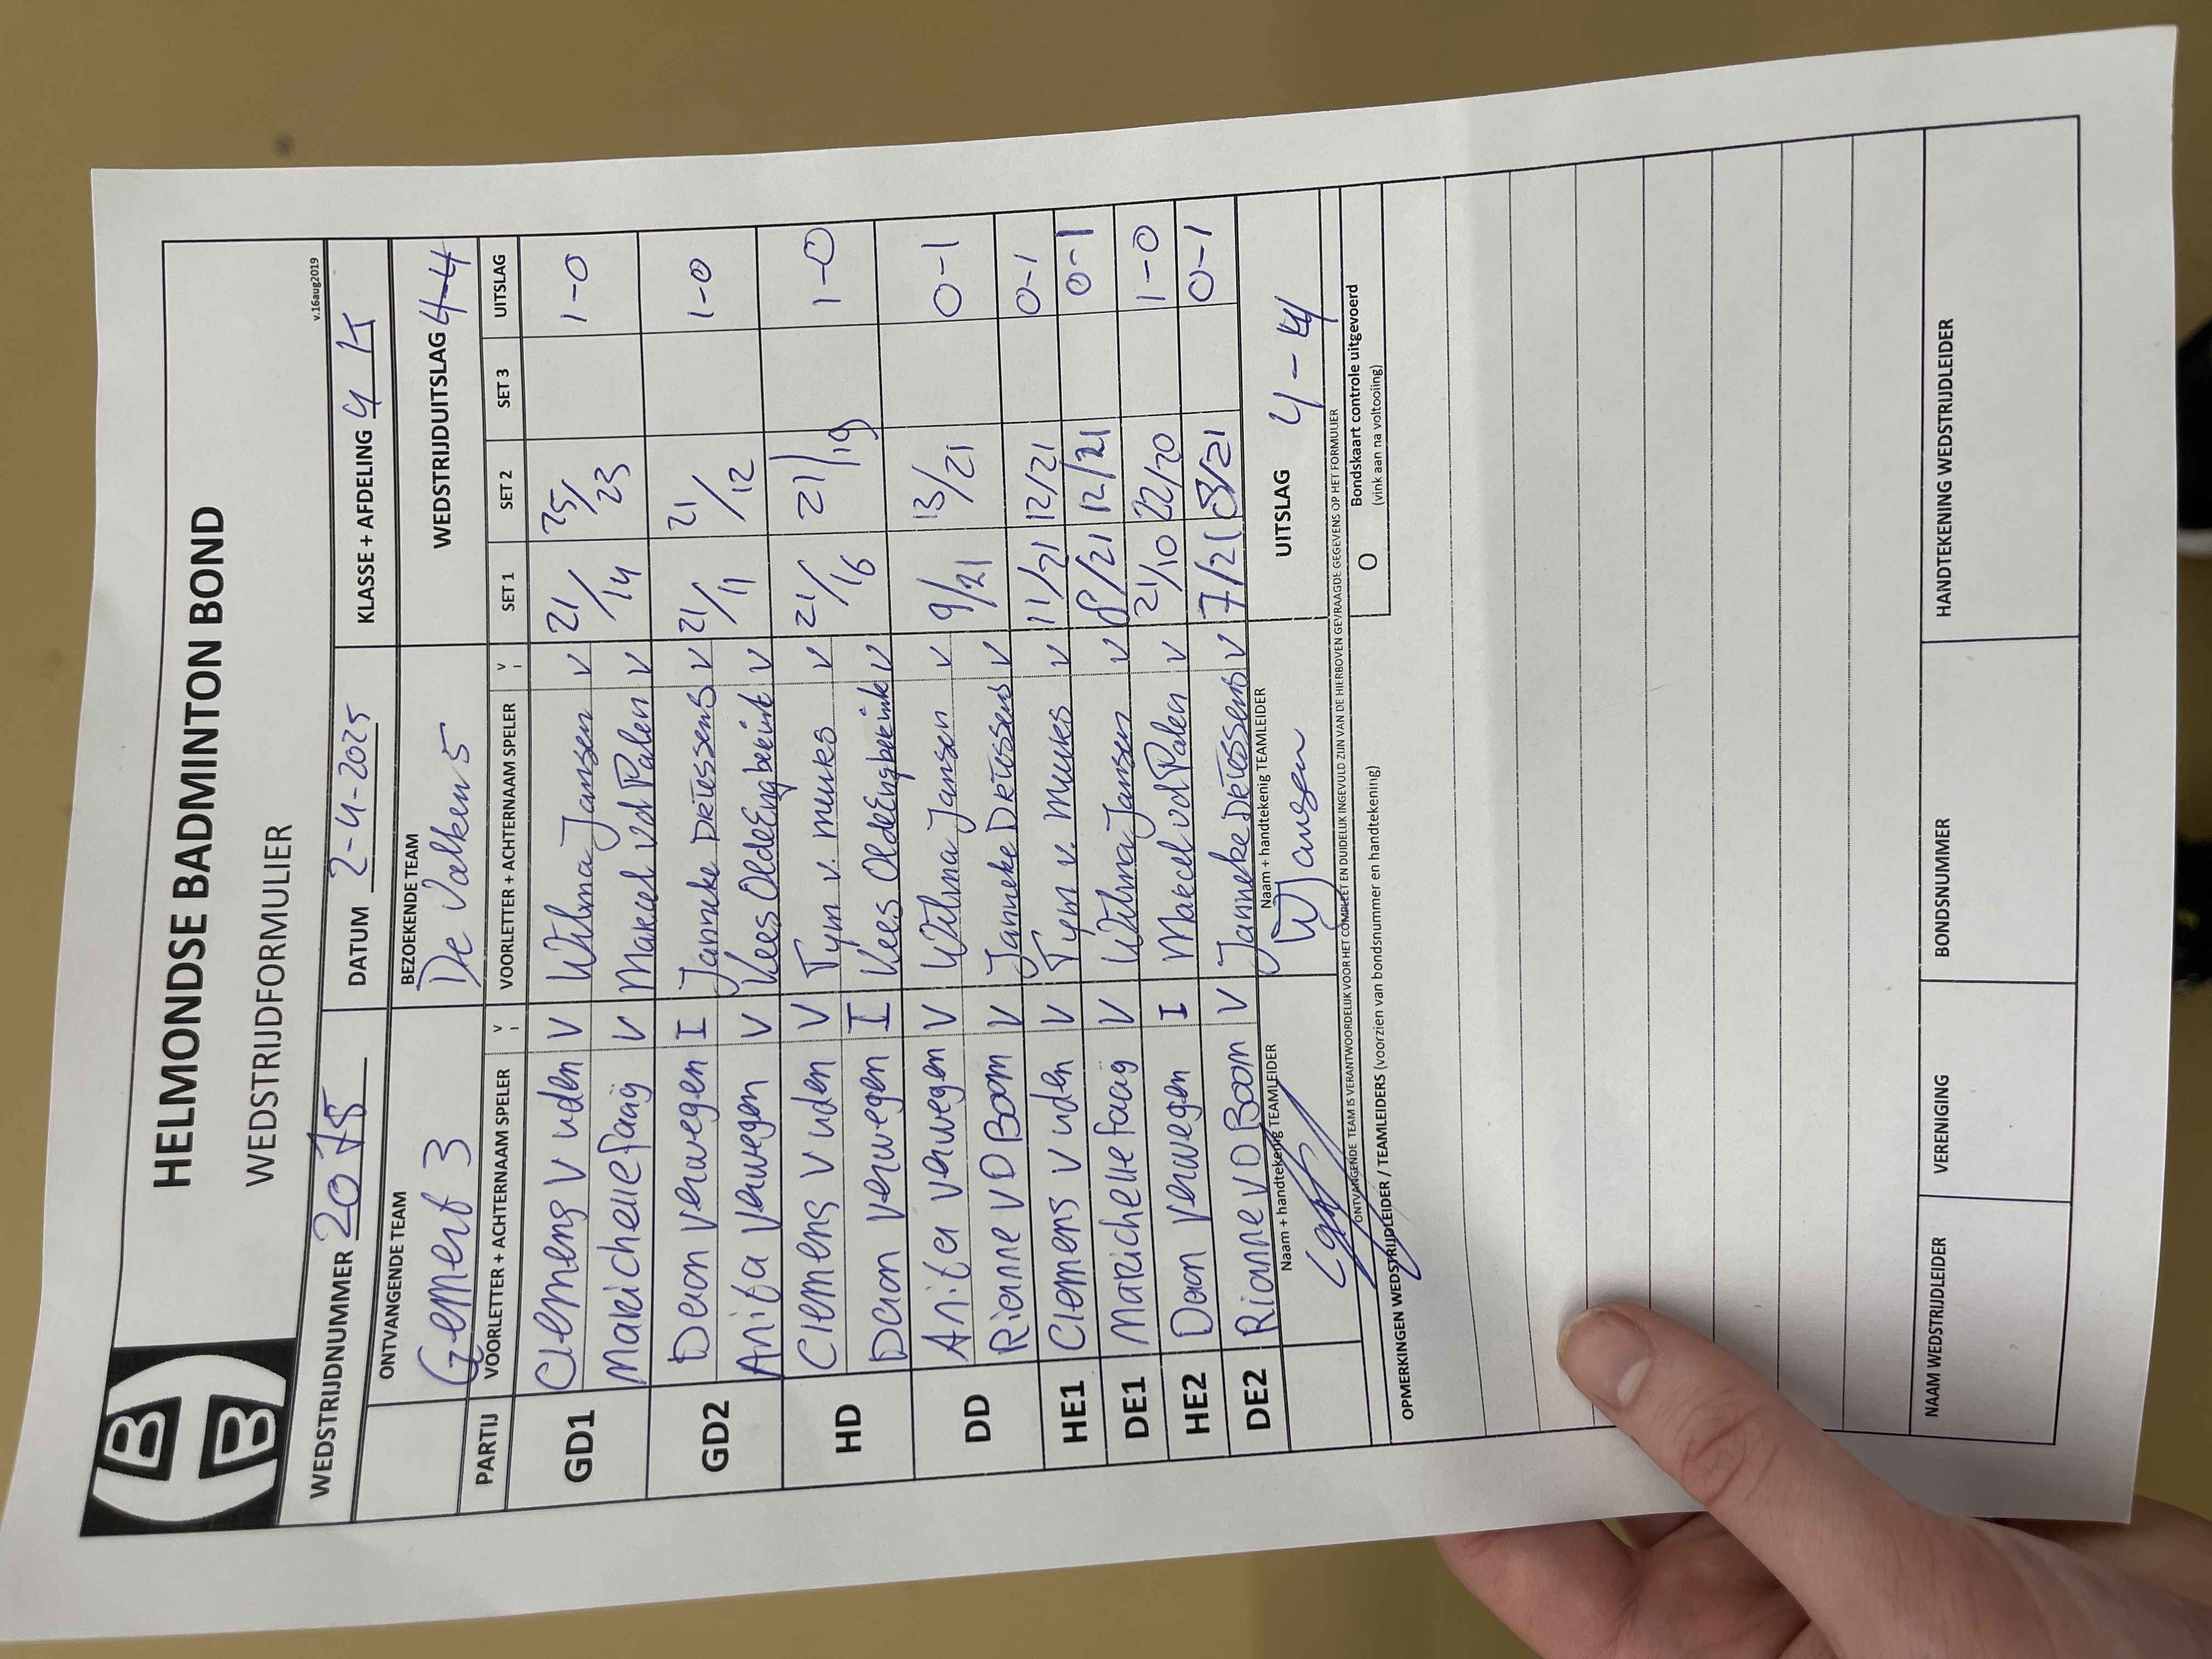 HELMONDSE BADMINTON BOND
WEDSTRIJDFORMULIER
v.16aug2019
WEDSTRIJDNUMMER 2075 DATUM 2-4-2025 KLASSE + AFDELING 4
ONTVANGENDE TEAM BEZOEKENDE TEAM
Gemert 3 De Valken 5 WEDSTRIJDUITSLAG 4-4
PARTIJ VOORLETTER + ACHTERNAAM SPELER V I VOORLETTER + ACHTERNAAM SPELER V I SET 1 SET 2 SET 3 UITSLAG
GD1 Clemens V uden V Wilma Jansen V 21/14 25/23 1-0
Marichelle faaij V Marcel vd Palen V
GD2 Daan Verwegen I Janneke Driessens V 21/11 21/12 1-0
Anita Verwegen V Kees OldeEngberink V
HD Clemens V uden V Tym v. Munks V 21/16 21/19 1-0
Daan Verwegen I Kees OldeEngberink V
DD Anita Verwegen V Wilma Jansen V 9/21 13/21 0-1
Rianne V D Boom V Janneke Driessens V
HE1 Clemens V uden V Tym v. Munks V 11/21 12/21 0-1
DE1 Marichelle faaij V Wilma Jansen V 8/21 12/21 0-1
HE2 Daan Verwegen I Marcel vd Palen V 21/10 22/20 1-0
DE2 Rianne V D Boom V Janneke Driessens V 7/21 8/21 0-1
Naam + handtekenig TEAMLEIDER Naam + handtekenig TEAMLEIDER
WJansen UITSLAG 4-4
ONTVANGENDE TEAM IS VERANTWOORDELIJK VOOR HET COMPLEET EN DUIDELIJK INGEVULD ZIJN VAN DE HIERBOVEN GEVRAAGDE GEGEVENS OP HET FORMULIER
OPMERKINGEN WEDSTRIJDLEIDER / TEAMLEIDERS (voorzien van bondsnummer en handtekening)
O Bondskaart controle uitgevoerd
(vink aan na voltooiing)
NAAM WEDSTRIJDLEIDER VERENIGING BONDSNUMMER HANDTEKENING WEDSTRIJDLEIDER